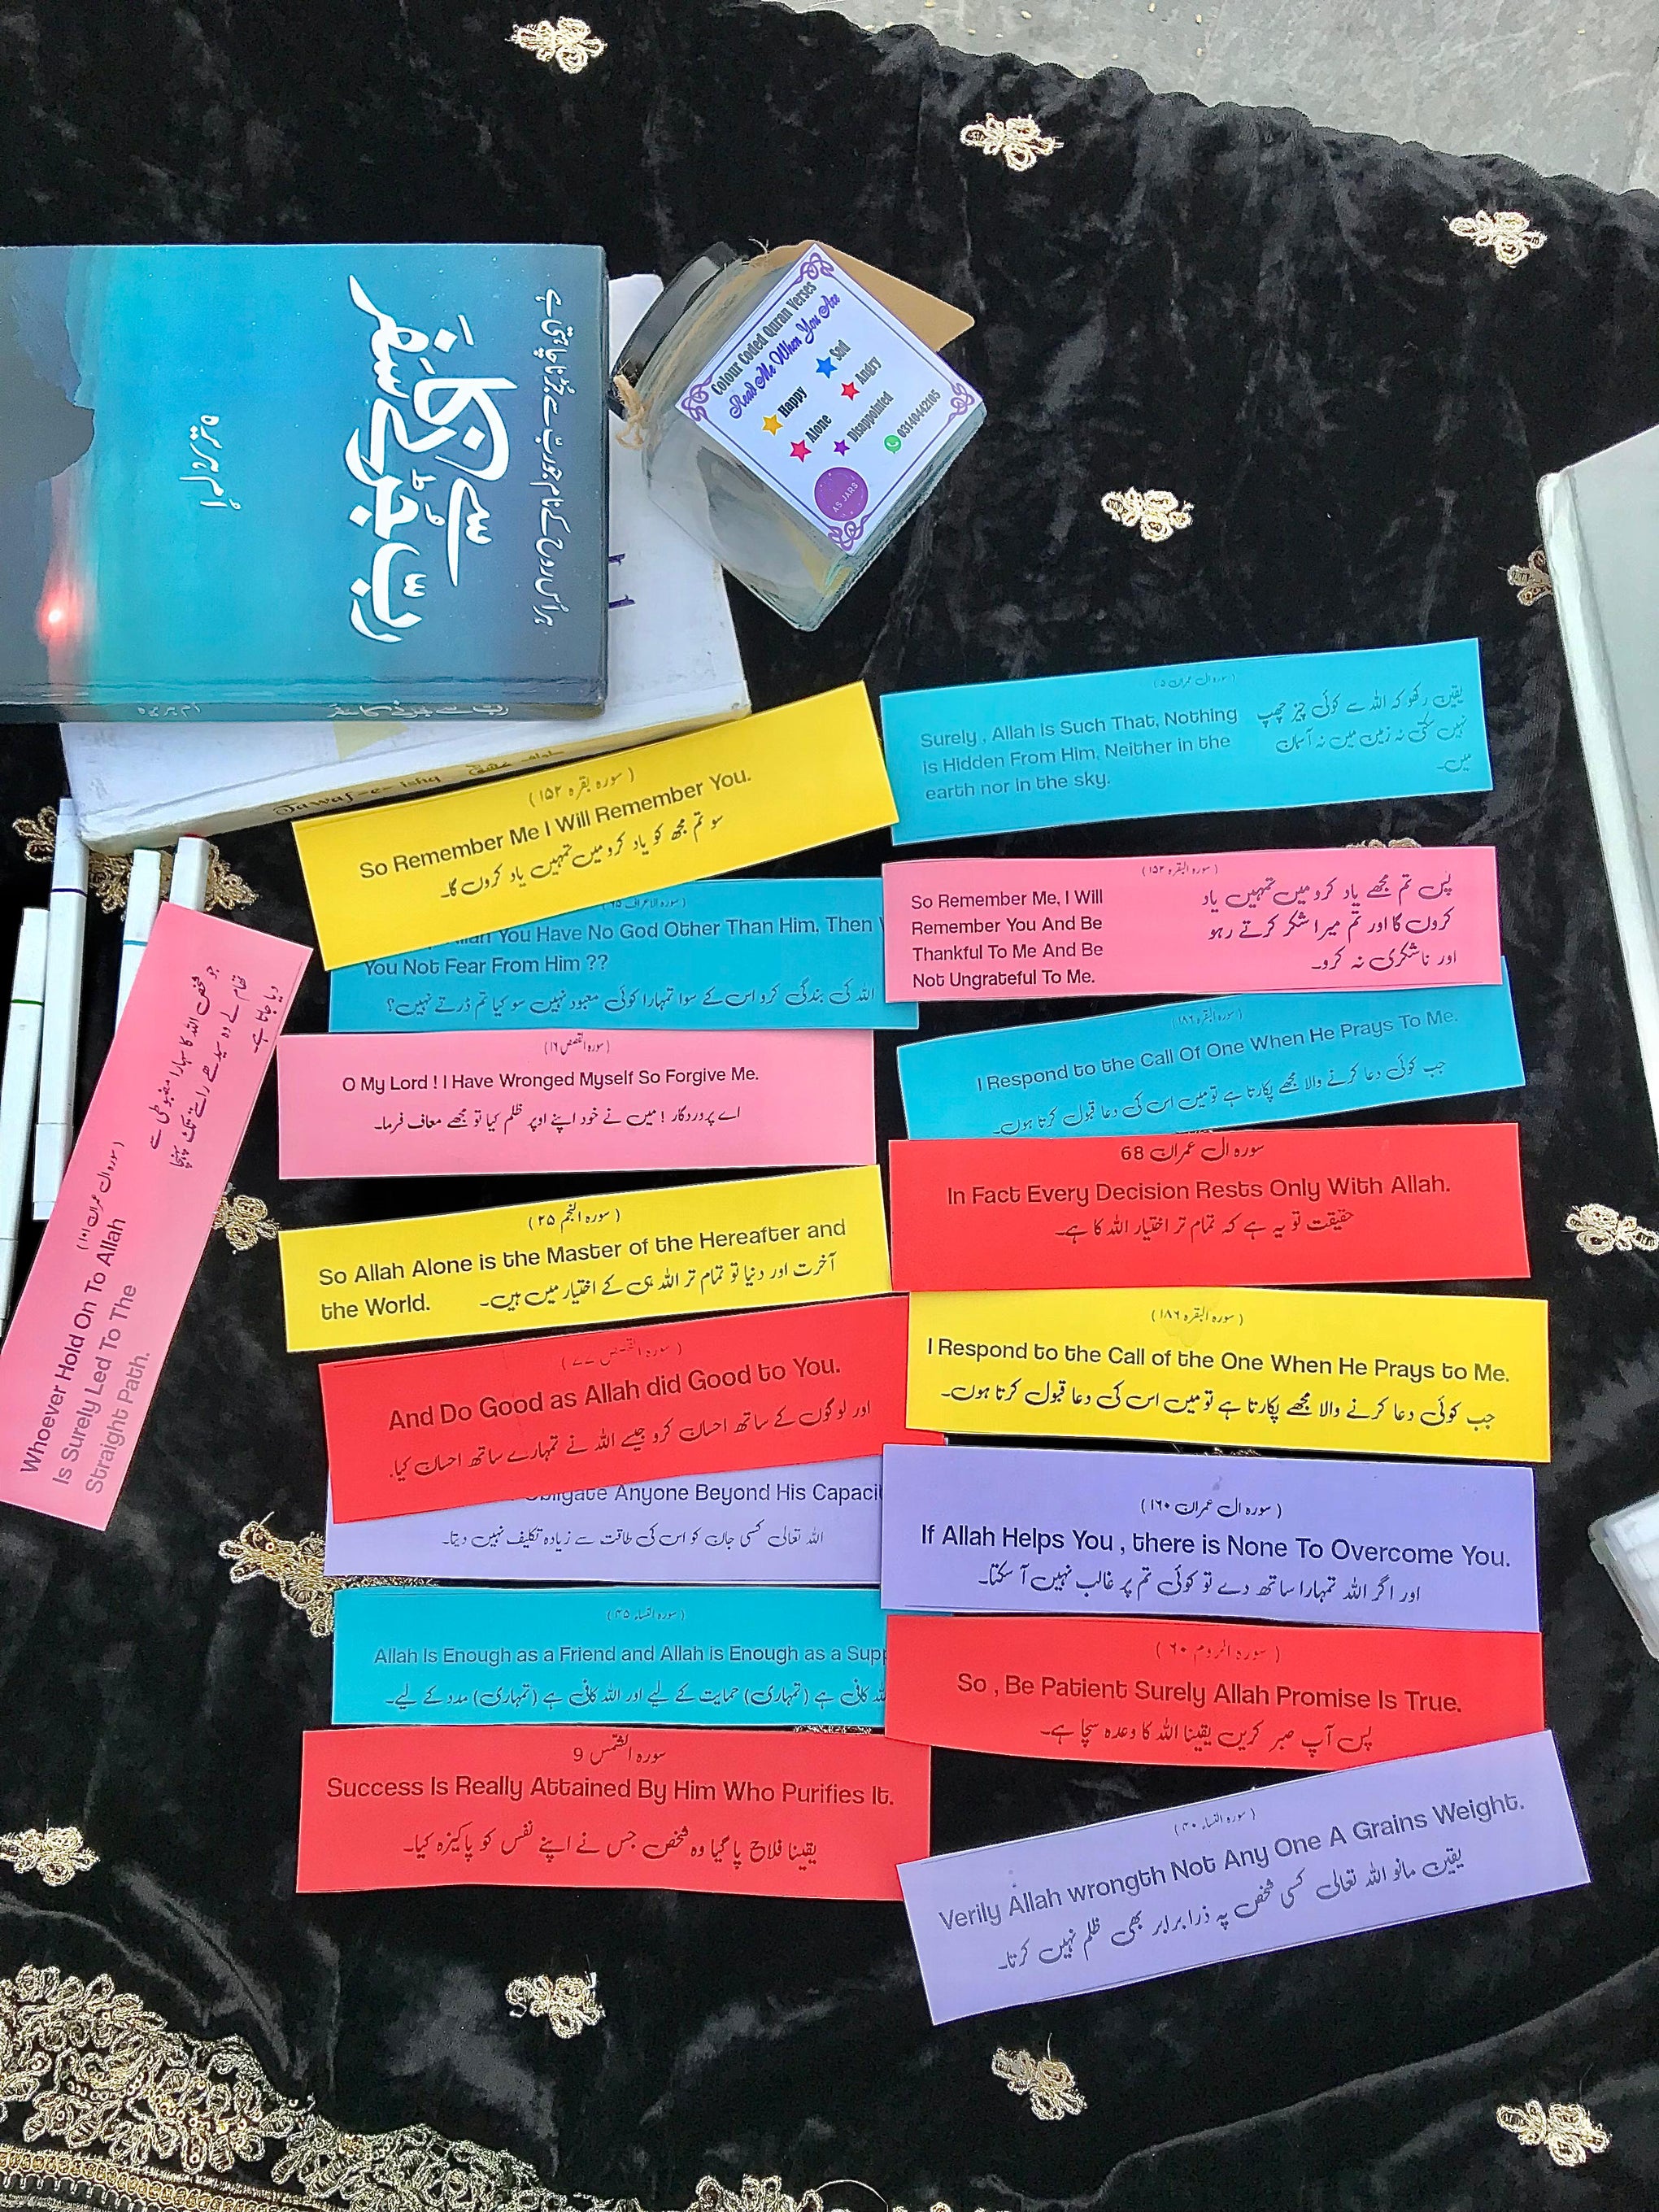 ہر اُس روح کے نام جو ربّ سے جُڑنا چاہتی ہے
ربّ سے جُڑنے کا سفر
اُم ہریرہ
رب سے جڑنے کا سفر
ام ہریرہ
Tawaf-e-ishq
طواف عشق
Colour Coded Quran Verses
Read Me When You Are
Happy
Sad
Alone
Angry
Disappointed
03140442105
AS JARS
(سورہ بقرہ ۱۵۲)
So Remember Me I Will Remember You.
سو تم مجھ کو یاد کرو میں تمہیں یاد کروں گا۔
(سورہ ال عمران ۵)
Surely , Allah is Such That, Nothing
is Hidden From Him, Neither in the
earth nor in the sky.
یقین رکھو کہ اللہ سے کوئی چیز چھپ
نہیں سکتی نہ زمین میں نہ آسمان
میں۔
سورہ الاعراف ۶۵
Allah You Have No God Other Than Him, Then
You Not Fear From Him ??
اللہ کی بندگی کرو اس کے سوا تمہارا کوئی معبود نہیں سو کیا تم ڈرتے نہیں؟
(سورہ البقرہ ۱۵۲)
So Remember Me, I Will
Remember You And Be
Thankful To Me And Be
Not Ungrateful To Me.
پس تم مجھے یاد کرو میں تمہیں یاد
کروں گا اور تم میرا شکر کرتے رہو
اور ناشکری نہ کرو۔
(سورہ القصص ۱۶)
O My Lord ! I Have Wronged Myself So Forgive Me.
اے پروردگار ! میں نے خود اپنے اوپر ظلم کیا تو مجھے معاف فرما۔
(سورہ البقرہ ۱۸۶)
I Respond to the Call Of One When He Prays To Me.
جب کوئی دعا کرنے والا مجھے پکارتا ہے تو میں اس کی دعا قبول کرتا ہوں۔
(سورہ ال عمران ۱۰۱)
Whoever Hold On To Allah
Is Surely Led To The
Straight Path.
جو شخص اللہ کا سہارا مضبوطی سے
تھام لے وہ سیدھے راستے تک پہنچا
دیا جاتا ہے
سورہ ال عمران 68
In Fact Every Decision Rests Only With Allah.
حقیقت تو یہ ہے کہ تمام تر اختیار اللہ کا ہے۔
(سورہ النجم ۲۵)
So Allah Alone is the Master of the Hereafter and
the World.
آخرت اور دنیا تو تمام تر اللہ ہی کے اختیار میں ہیں۔
(سورہ البقرہ ۱۸۶)
I Respond to the Call of the One When He Prays to Me.
جب کوئی دعا کرنے والا مجھے پکارتا ہے تو میں اس کی دعا قبول کرتا ہوں۔
(سورہ القصص ۷۷)
And Do Good as Allah did Good to You.
اور لوگوں کے ساتھ احسان کرو جیسے اللہ نے تمہارے ساتھ احسان کیا.
Obligate Anyone Beyond His Capaci
اللہ تعالی کسی جان کو اس کی طاقت سے زیادہ تکلیف نہیں دیتا۔
(سورہ ال عمران ۱۶۰)
If Allah Helps You , there is None To Overcome You.
اور اگر اللہ تمہارا ساتھ دے تو کوئی تم پر غالب نہیں آ سکتا۔
(سورہ النساء ۴۵)
Allah Is Enough as a Friend and Allah is Enough as a Supp
کافی ہے (تمہاری) حمایت کے لیے اور اللہ کافی ہے (تمہاری) مدد کے لیے۔
(سورہ الروم ۶۰)
So , Be Patient Surely Allah Promise Is True.
پس آپ صبر کریں یقینا اللہ کا وعدہ سچا ہے۔
سورہ الشمس 9
Success Is Really Attained By Him Who Purifies It.
یقینا فلاح پا گیا وہ شخص جس نے اپنے نفس کو پاکیزہ کیا۔
(سورہ النساء ۴۰)
Verily Allah wrongth Not Any One A Grains Weight.
یقین مانو اللہ تعالی کسی شخص پہ ذرا برابر بھی ظلم نہیں کرتا۔